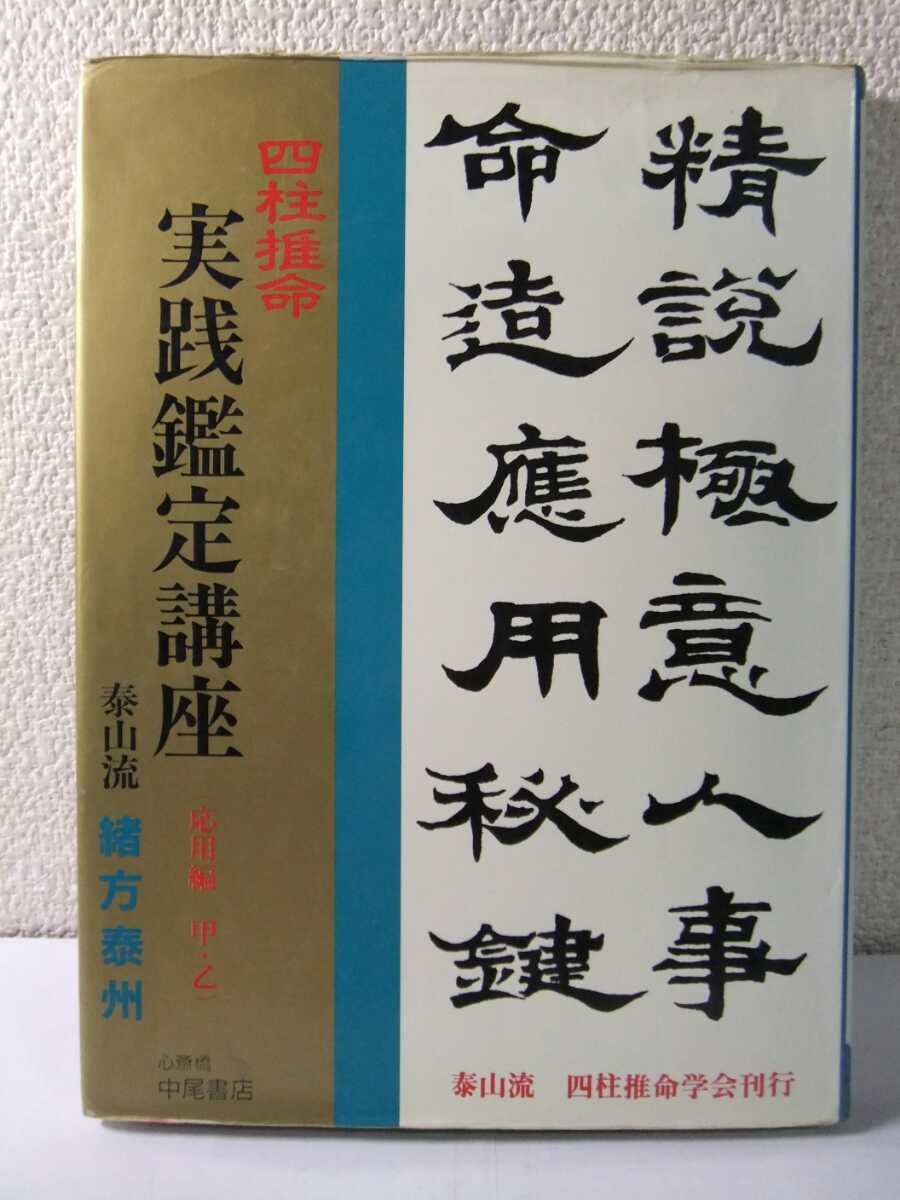 精説極意人事
命造應用秘鍵
四柱推命
実践鑑定講座
（応用編　甲・乙）
泰山流　緒方泰州
心斎橋
中尾書店
泰山流　四柱推命学会刊行